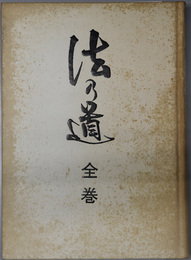 法の道
全巻